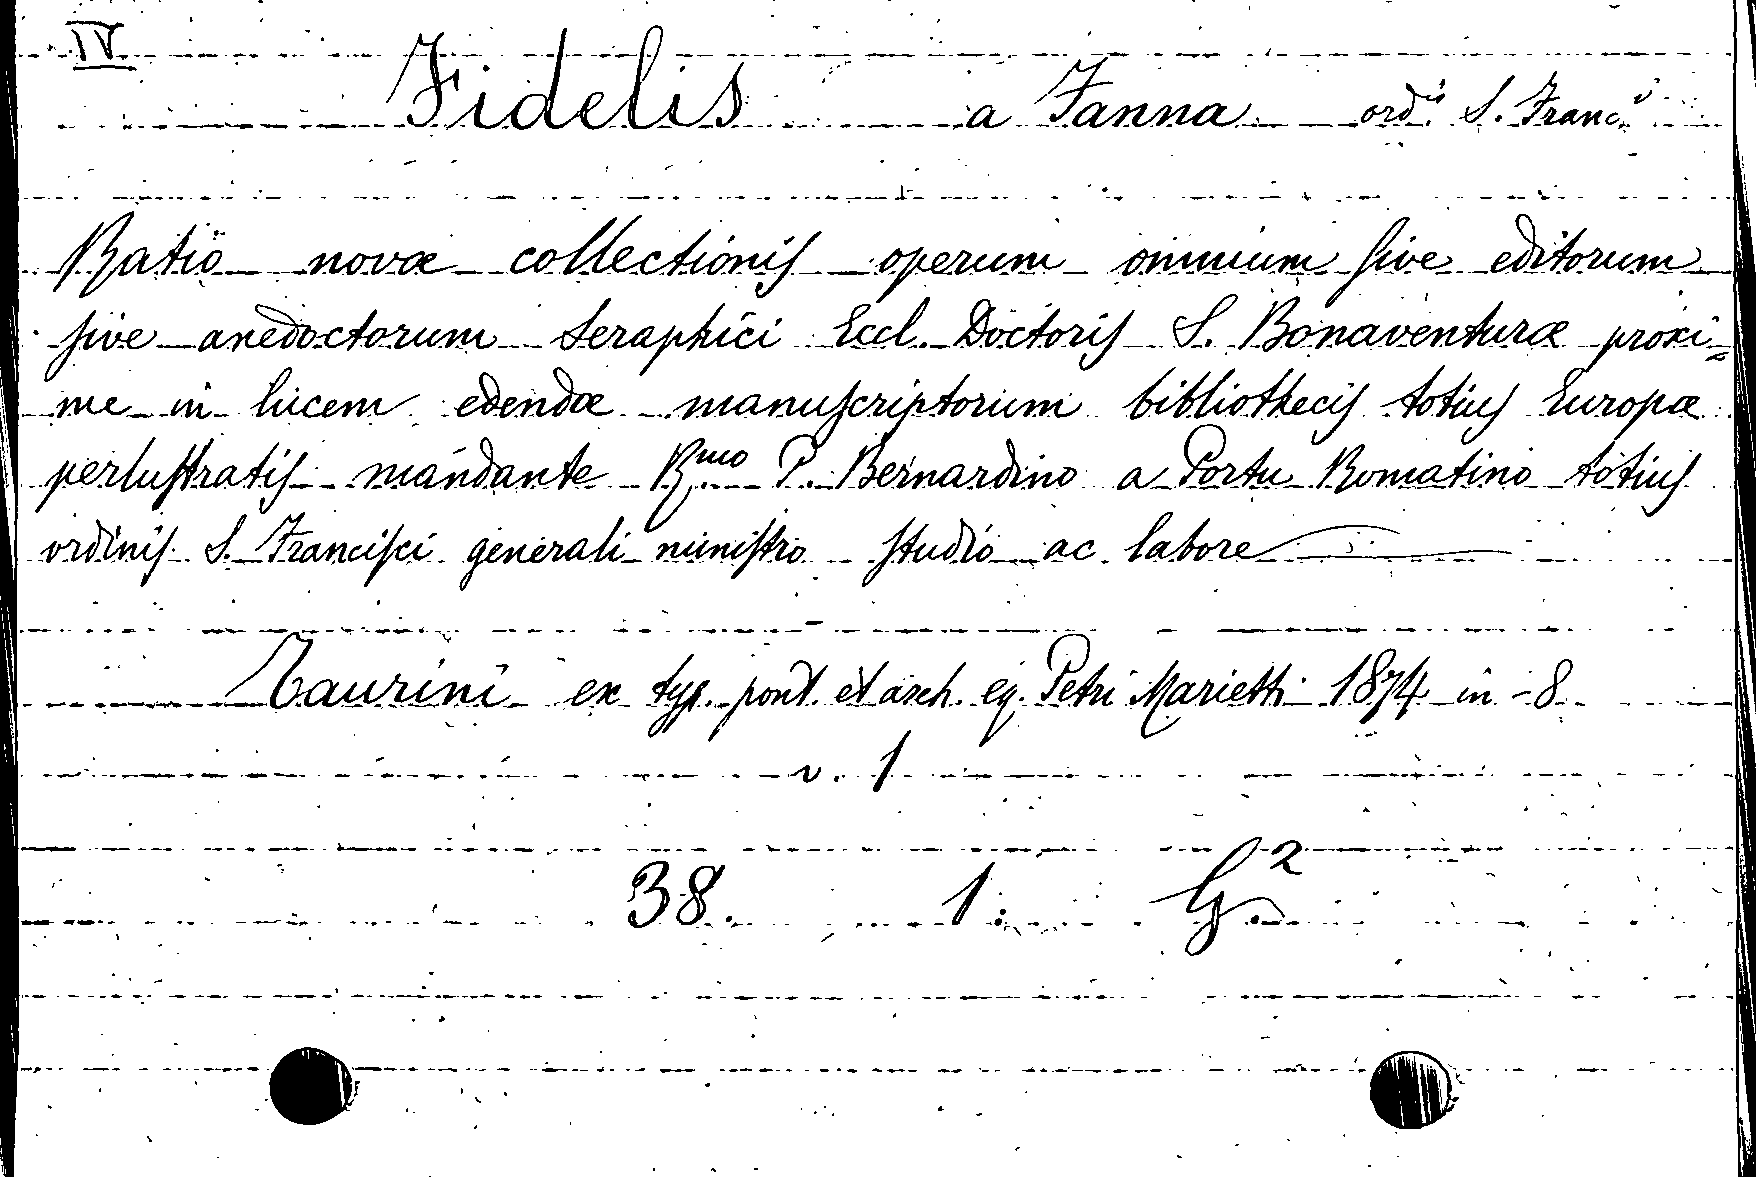 IV
Fidelis a Fanna ord.is S. Franc.i
Ratio novæ collectionis operum omnium sive editorum
sive anedoctorum Seraphici Eccl. Doctoris S. Bonaventuræ proxi=
me in lucem edendæ manuscriptorum bibliothecis totius Europæ
perlustratis mandante R.mo P. Bernardino a Portu Romatino totius
ordinis S. Francisci generali ministro studio ac labore
Taurini ex typ. pont. et arch. eq. Petri Marietti 1874 in-8
v. 1
38. 1. G.2